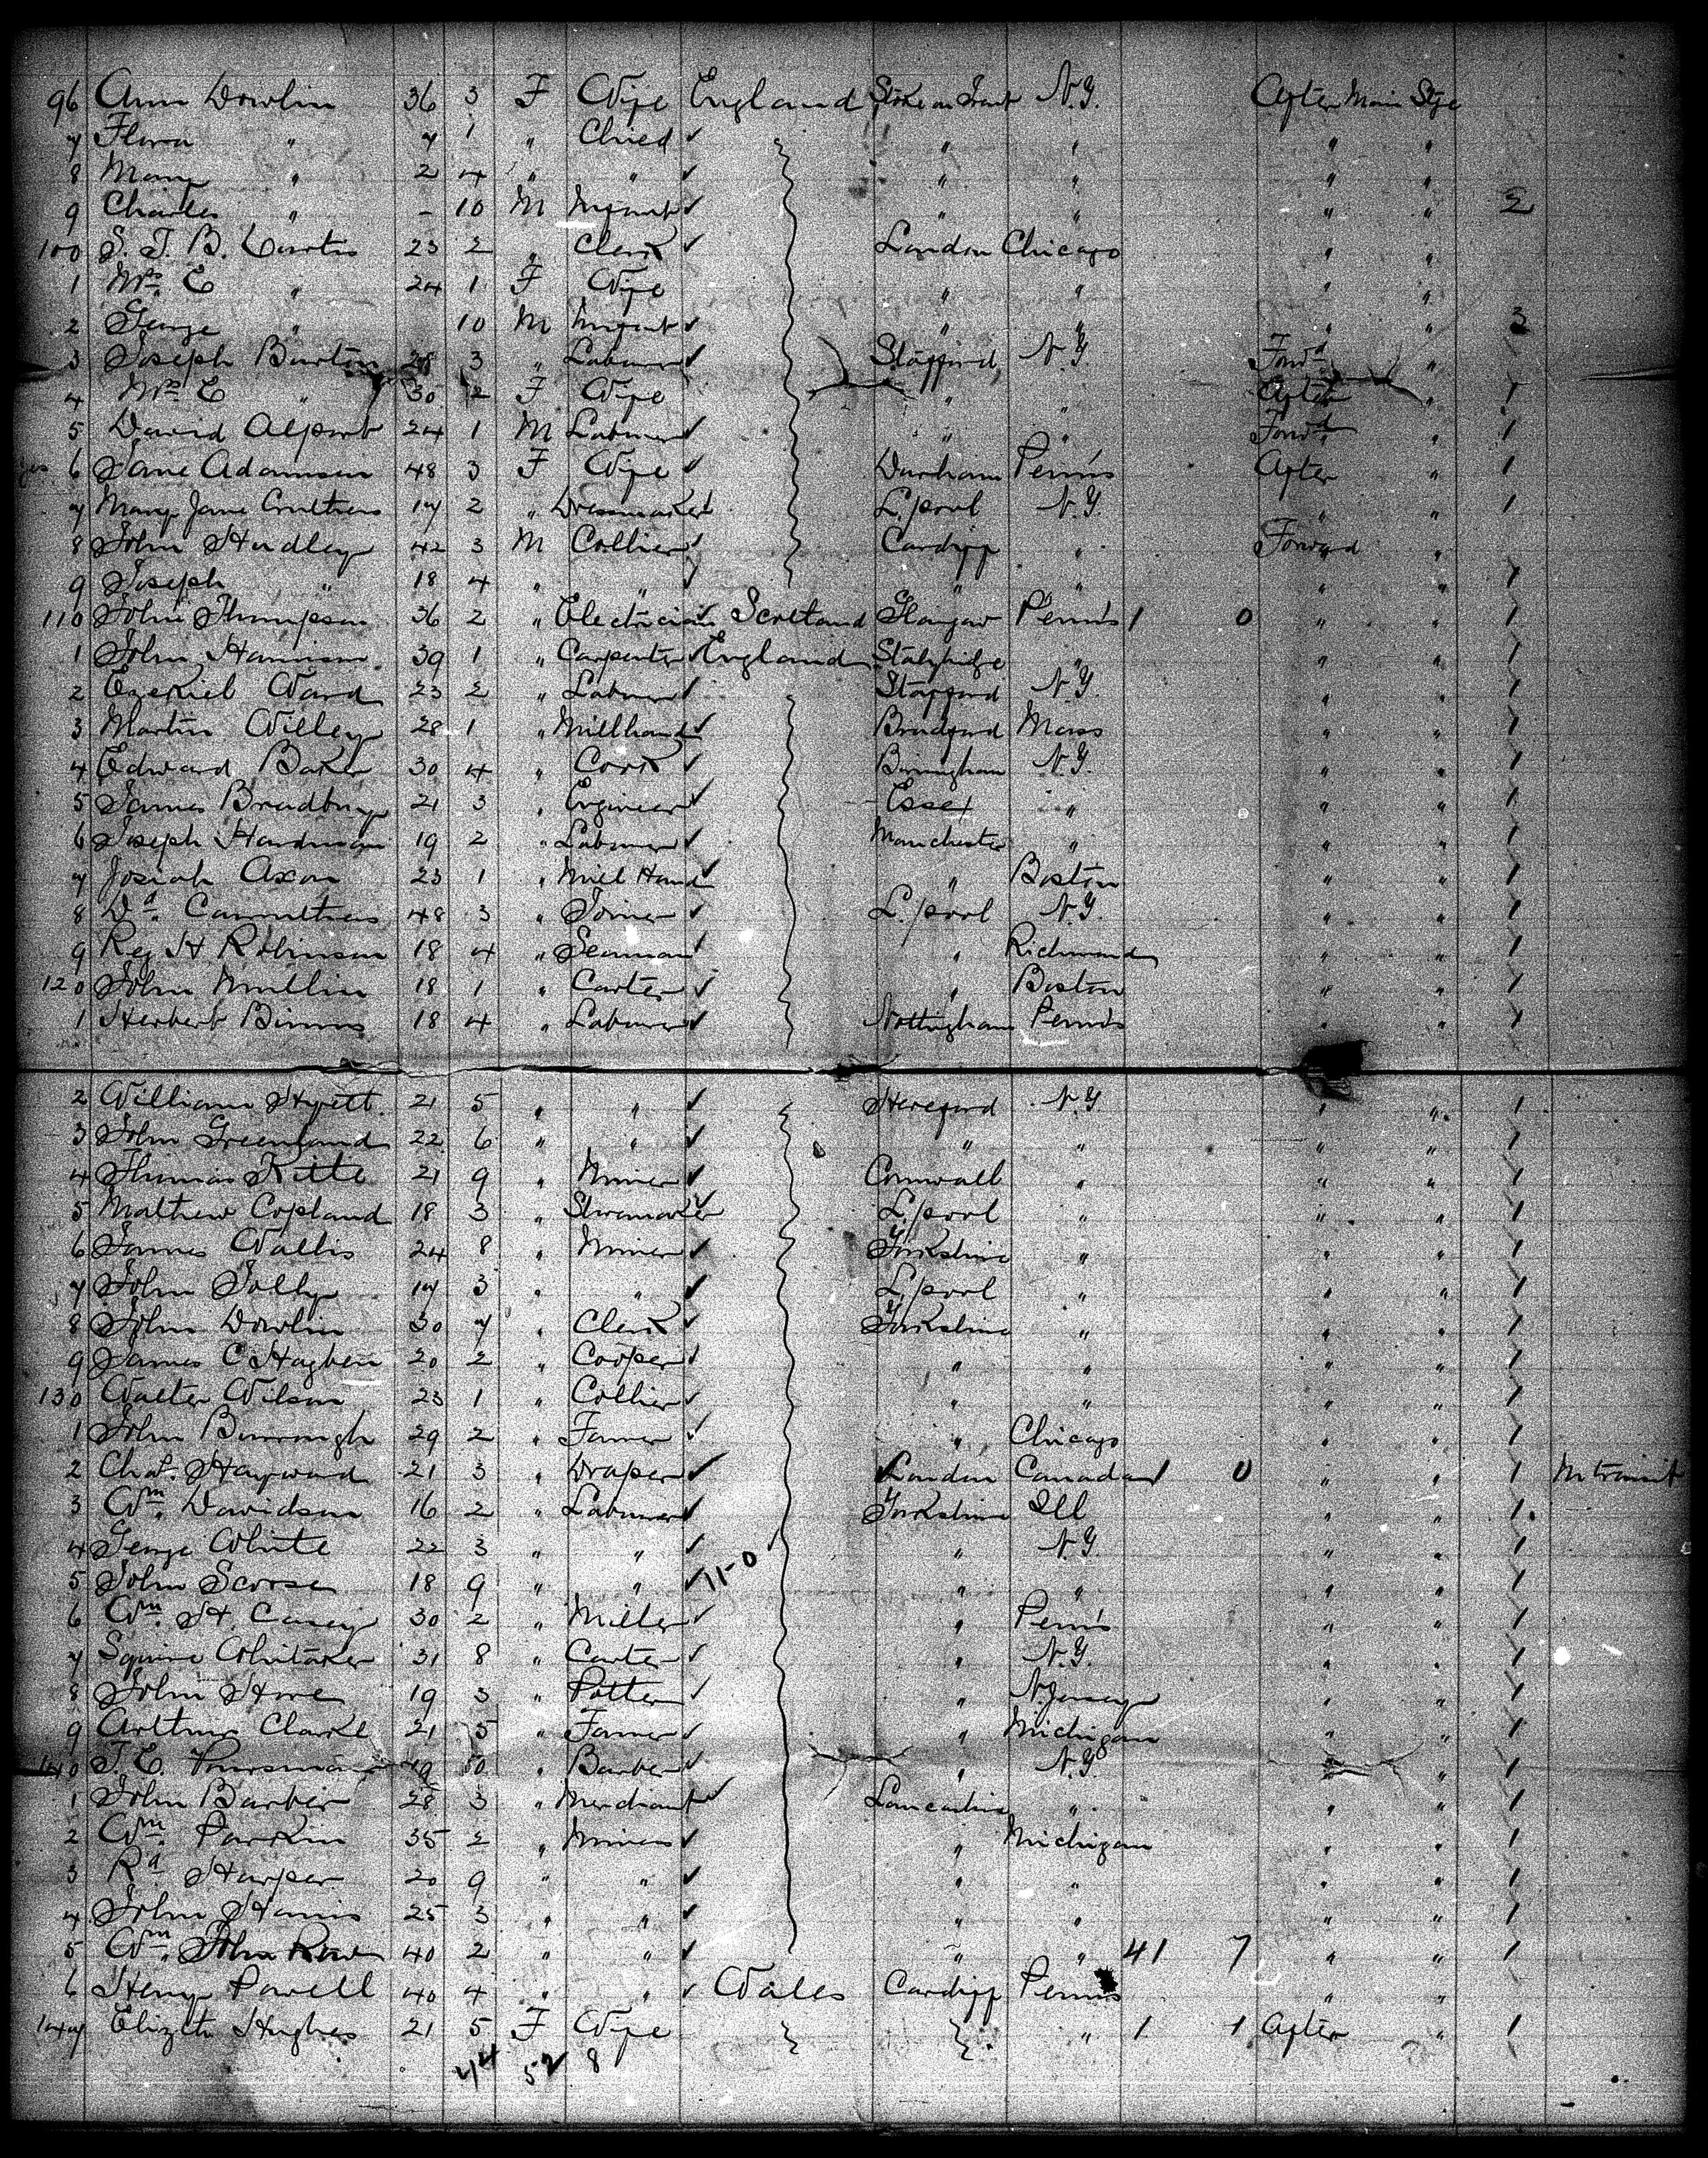 96 Ann Dowlin 36 3 F Wife England Stoke on Trent N.Y. After Main Stge
7 Flora " 7 1 " Chied ✓ " " " "
8 Mary " 2 4 " " ✓ " " " "
9 Charles " - 10 M Infant ✓ " " " " 2
100 S. T. B. Curtis 23 2 " Clerk ✓ London Chicago " "
1 Mrs. E " 24 1 F Wife " " " "
2 George " 10 M Infant ✓ " " " " 3
3 Joseph Burton 28 3 " Labourer ✓ Stafford N.Y. Forwd "
4 Mrs E " 30 2 F Wife " " After " 1
5 David Alport 24 1 M Labourer ✓ " " Forwd " 1
6 Jane Adamson 48 3 F Wife ✓ Durham Penns After " 1
7 Mary Jane 17 2 " Dressmaker ✓ L.pool N.Y. " " 1
8 John Hindley 42 3 M Collier ✓ Cardiff " Forwad "
9 Joseph " 18 4 " " ✓ " " " " 1
110 John Thompson 36 2 " Electrician ✓ Scotland Glasgow Penns 1 0 " " 1
1 John Harrison 39 1 " Carpenter ✓ England Stalybridge " " " 1
2 Ezekiel Ward 23 2 " Labourer ✓ Stafford N.Y. " " 1
3 Martin Willey 28 1 " Millhand ✓ Bradford Mass " " 1
4 Edward Baker 30 4 " Cook ✓ Birmingham N.Y. " " 1
5 James Bradbury 21 3 " Engineer ✓ Essex " " " 1
6 Joseph Hardman 19 2 " Labourer ✓ Manchester " " " 1
7 Josiah Axon 23 1 " Mill Hand ✓ " Boston " " 1
8 Carruthers 48 3 " Joiner ✓ L.pool N.Y. " " 1
9 Reg H Robinson 18 4 " Seaman ✓ " Richmond " " 1
120 John Mullin 18 1 " Carter ✓ " Boston " " 1
1 Herbert Binns 18 4 " Labourer ✓ Nottingham Penns " " 1
2 William Hyett 21 5 " " ✓ Hereford N.Y " " 1
3 John Greenland 22 6 " " ✓ " " " " 1
4 Thomas Kitto 21 9 " Miner ✓ Cornwall " " " 1
5 Mathew Copland 18 3 " Shoemaker ✓ L.pool " " " 1
6 James Wallis 24 8 " Miner ✓ Yorkshire " " " 1
7 John Jolly 17 3 " " ✓ L.pool " " " 1
8 John Dowlin 30 7 " Clerk ✓ Yorkshire " " " 1
9 James C Hughen 20 2 " Cooper ✓ " " " " 1
130 Walter Wilson 23 1 " Collier ✓ " " " " 1
1 John Burrough 29 2 " Farmer ✓ " Chicago " " 1
2 Chas. Hayward 21 3 " Draper ✓ London Canada 1 0 " " 1 In transit
3 Wm. Davidson 16 2 " Labourer ✓ Yorkshire Ill " " 1
4 George White 22 3 " " ✓ " N.Y. " " 1
5 John 18 9 " " ✓ 11-0 " " " " 1
6 Wm. H. Casey 30 2 " Miller ✓ " Penns " " 1
7 Squire Whitaker 31 8 " Carter ✓ " N.Y. " " 1
8 John Howe 19 3 " Potter ✓ " N.Jersey " " 1
9 Arthur Clarke 21 5 " Farmer ✓ " Michigan " " 1
140 T. E. 19 10 " Barber ✓ " N.Y. " " 1
1 John Barber 28 3 " Merchant ✓ Lancashire " " " 1
2 Wm. Parkin 35 2 " Miner ✓ " Michigan " " 1
3 Rd. Harper 20 9 " " ✓ " " " " 1
4 John Harris 25 3 " " ✓ " " " " 1
5 Wm. John Rowe 40 2 " " ✓ " " 41 7 " " 1
6 Henry Powell 40 4 " " ✓ Wales Cardiff Penns " "
147 Elizth Hughes 21 5 F Wife " 1 1 After " 1
44 52 8